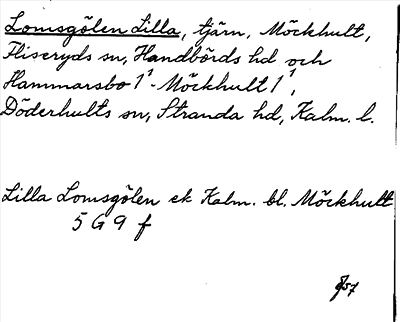 Lomsgölen Lilla, tjärn, Möckhult,
Fliseryds sn, Handbörds hd och
Hammarsbo 1¹ - Möckhult 1¹,
Döderhults sn, Stranda hd, Kalm. l.
Lilla Lomsgölen ek Kalm. bl. Möckhult
5 G 9 f